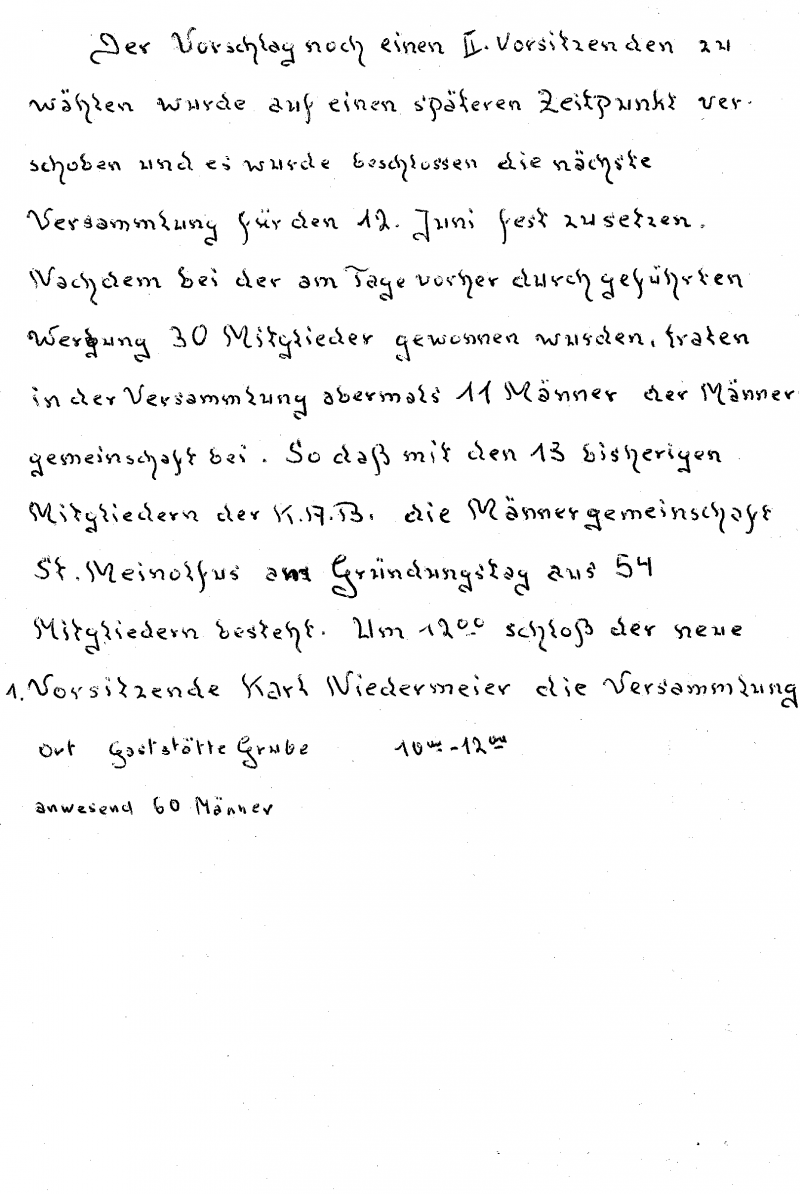 Der Vorschlag noch einen II. Vorsitzenden zu
wählen wurde auf einen späteren Zeitpunkt ver-
schoben und es wurde beschlossen die nächste
Versammlung für den 12. Juni fest zusetzen.
Nachdem bei der am Tage vorher durchgeführten
Werbung 30 Mitglieder gewonnen wurden, traten
in der Versammlung abermals 11 Männer der Männer
gemeinschaft bei. So daß mit den 13 bisherigen
Mitgliedern der K.A.B. die Männergemeinschaft
St. Meinolfus am Gründungstag aus 54
Mitgliedern besteht. Um 12⁰⁰ schloß der neue
1. Vorsitzende Karl Niedermeier die Versammlung
Ort Gaststätte Grube 10⁰⁰-12⁰⁰
anwesend 60 Männer